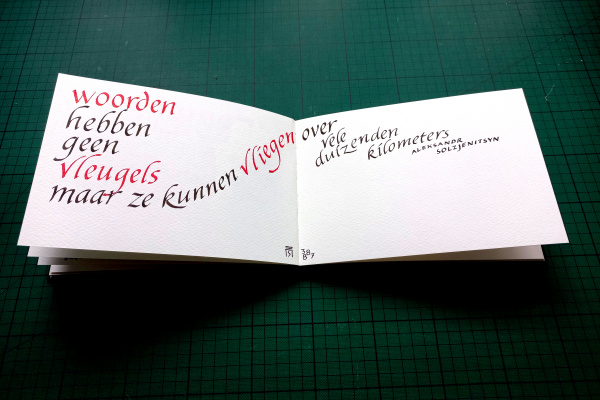 woorden
hebben
geen
vleugels
maar ze kunnen vliegen over
vele
duizenden
kilometers
ALEKSANDR
SOLZJENITSYN